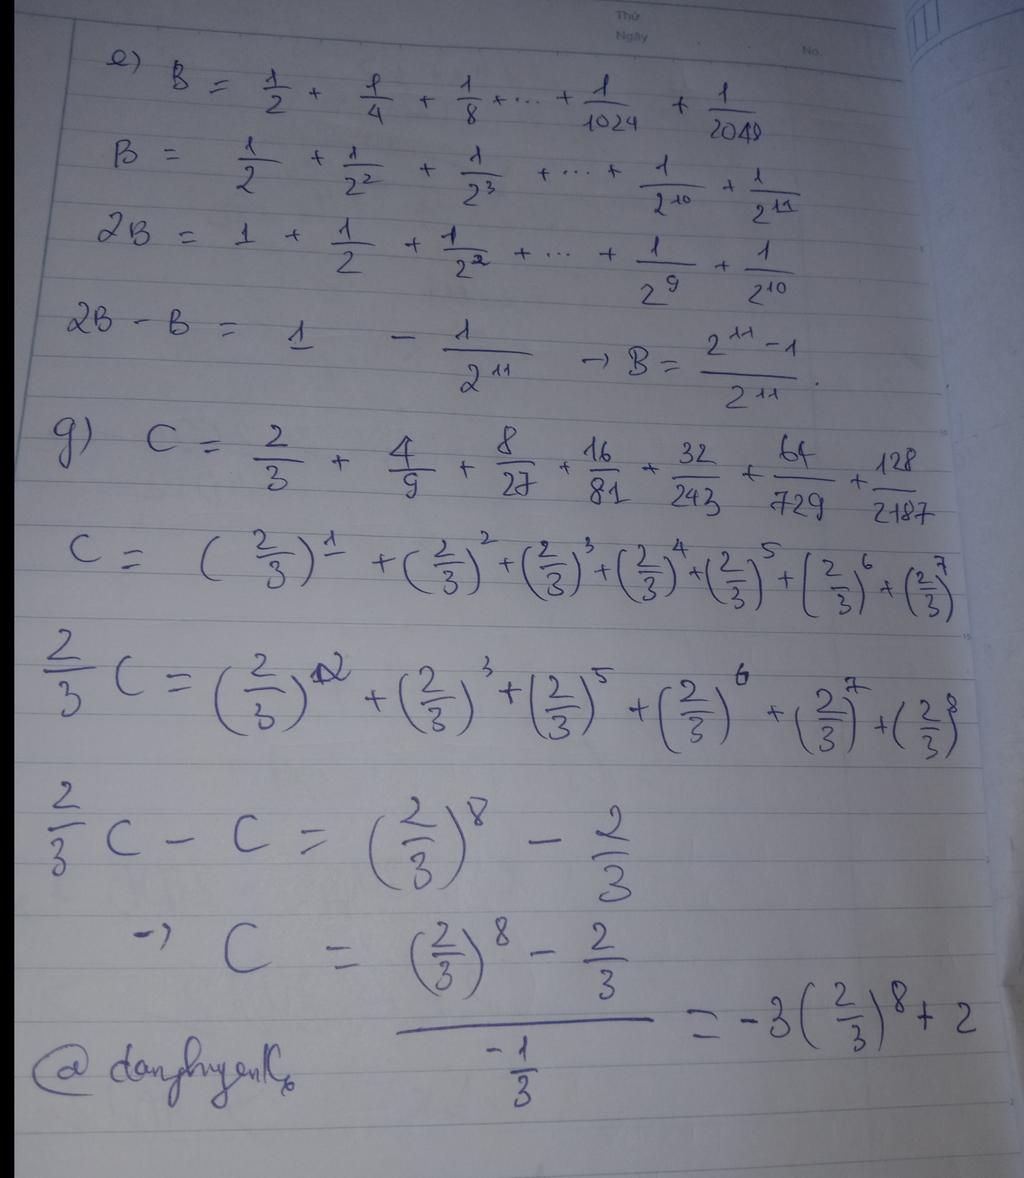 Thứ
Ngày
No.
e) B = 1/2 + 1/4 + 1/8 + ... + 1/1024 + 1/2048
B = 1/2 + 1/2² + 1/2³ + ... + 1/2¹⁰ + 1/2¹¹
2B = 1 + 1/2 + 1/2² + ... + 1/2⁹ + 1/2¹⁰
2B - B = 1 - 1/2¹¹ → B = (2¹¹ - 1)/2¹¹.
g) C = 2/3 + 4/9 + 8/27 + 16/81 + 32/243 + 64/729 + 128/2187
C = (2/3)¹ + (2/3)² + (2/3)³ + (2/3)⁴ + (2/3)⁵ + (2/3)⁶ + (2/3)⁷
2/3 C = (2/3)² + (2/3)³ + (2/3)⁵ + (2/3)⁶ + (2/3)⁷ + (2/3)⁸
2/3 C - C = (2/3)⁸ - 2/3
→ C = ((2/3)⁸ - 2/3)/(-1/3) = -3(2/3)⁸ + 2